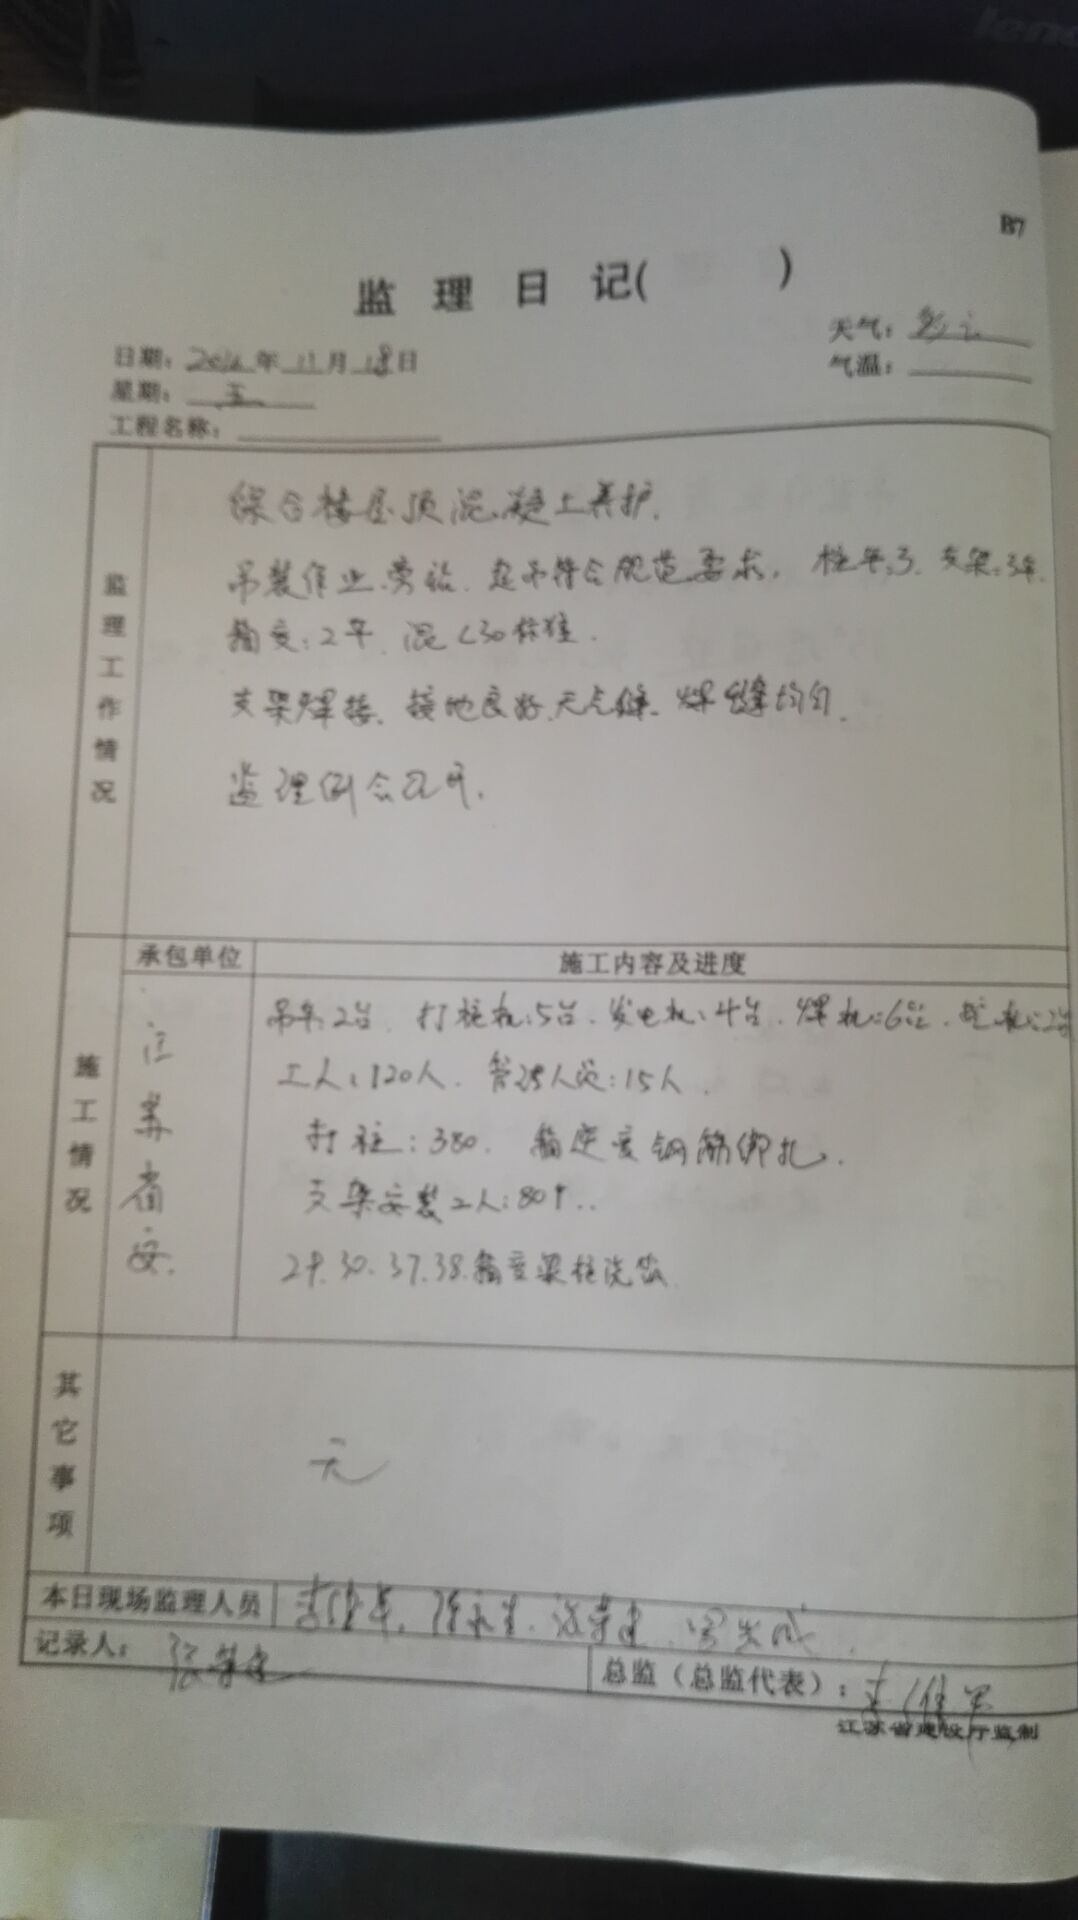 lenovo
B7
监理日记( )
天气：多云
日期：2016年11月18日
气温：
星期：五
工程名称：
监理工作情况
综合楼屋顶混凝土养护.
吊装作业旁站. 符合规范要求. 桩车:3. 支架:3车.
箱变:2车. 混C30标准.
支架焊接. 接地良好. 无气缝. 焊缝均匀.
监理例会召开.
承包单位
施工内容及进度
施工情况
江苏省安.
吊车2台. 打桩机:5台. 发电机:4台. 焊机:6台. 2台
工人:120人. 管理人员:15人.
打桩:380. 箱逆变钢筋绑扎.
支架安装工人:80个..
29.30.37.38.箱变梁柱浇筑
其它事项
无
本日现场监理人员
记录人：
总监（总监代表）：
江苏省建设厅监制